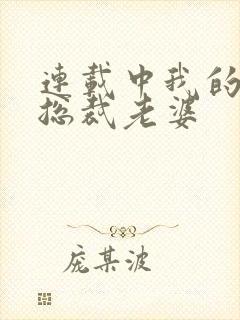 連載中我的
总裁老婆
庞某波